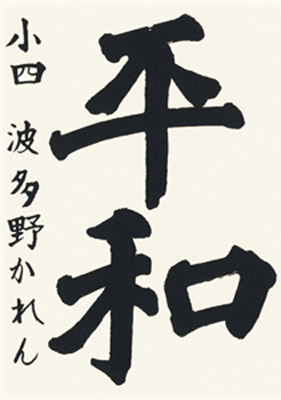 平和
小四 波多野かれん